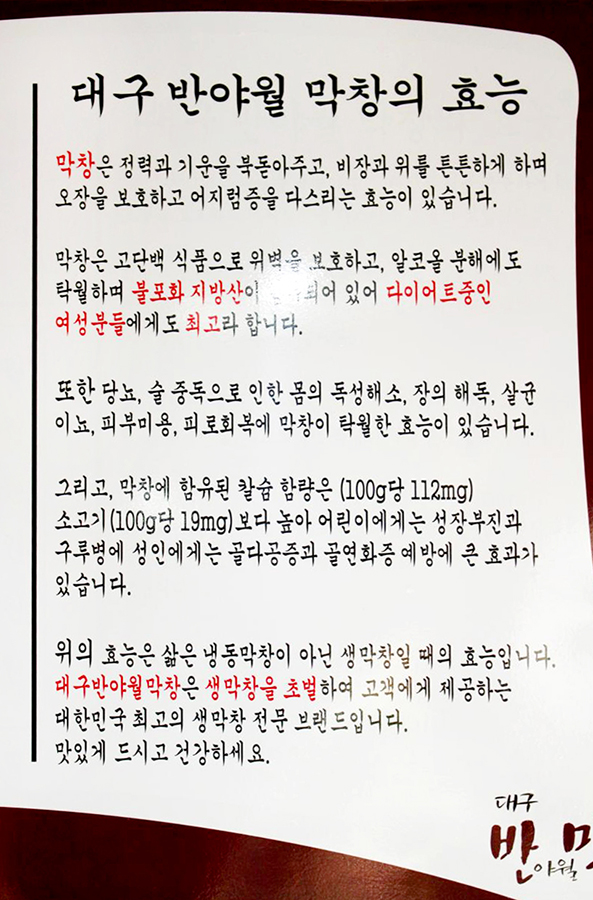 대구 반야월 막창의 효능
막창은 정력과 기운을 북돋아주고, 비장과 위를 튼튼하게 하며
오장을 보호하고 어지럼증을 다스리는 효능이 있습니다.
막창은 고단백 식품으로 위벽을 보호하고, 알코올 분해에도
탁월하며 불포화 지방산이 되어 있어 다이어트중인
여성분들에게도 최고라 합니다.
또한 당뇨, 술 중독으로 인한 몸의 독성해소, 장의 해독, 살균
이뇨, 피부미용, 피로회복에 막창이 탁월한 효능이 있습니다.
그리고, 막창에 함유된 칼슘 함량은 (100g당 112mg)
소고기(100g당 19mg)보다 높아 어린이에게는 성장부진과
구루병에 성인에게는 골다공증과 골연화증 예방에 큰 효과가
있습니다.
위의 효능은 삶은 냉동막창이 아닌 생막창일 때의 효능입니다.
대구반야월막창은 생막창을 초벌하여 고객에게 제공하는
대한민국 최고의 생막창 전문 브랜드입니다.
맛있게 드시고 건강하세요.
대구
반
야월